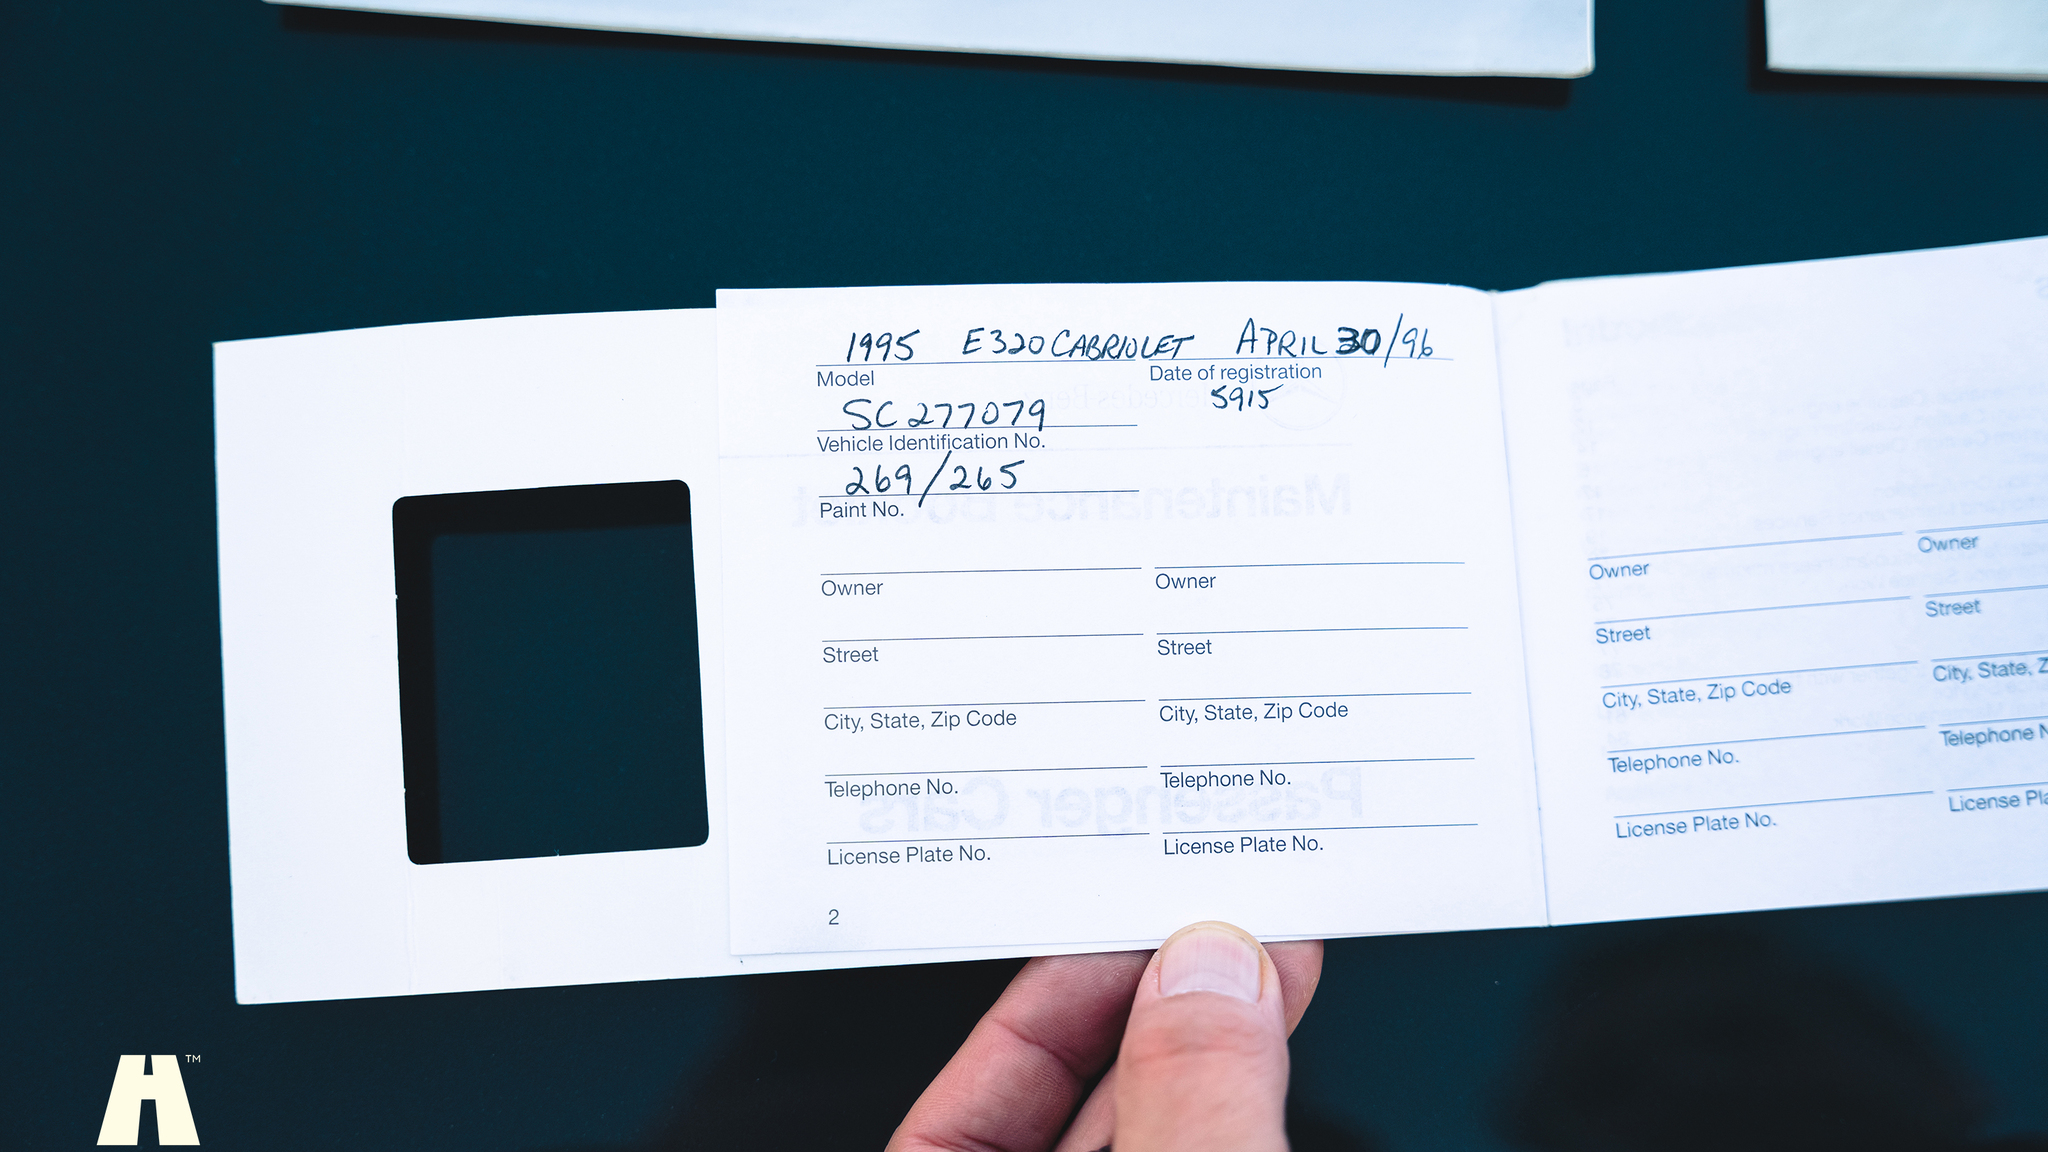 1995 E320 CABRIOLET APRIL 30/96
Model Date of registration
SC277079 5915
Vehicle Identification No.
269/265
Paint No.
Maintenance
Owner Owner
Street Street
City, State, Zip Code City, State, Zip Code
Telephone No. Telephone No.
Passenger Cars
License Plate No. License Plate No.
2
Owner Owner
Street Street
City, State, Z
City, State, Zip Code
Telephone N
Telephone No.
License Pla
License Plate No.
H™